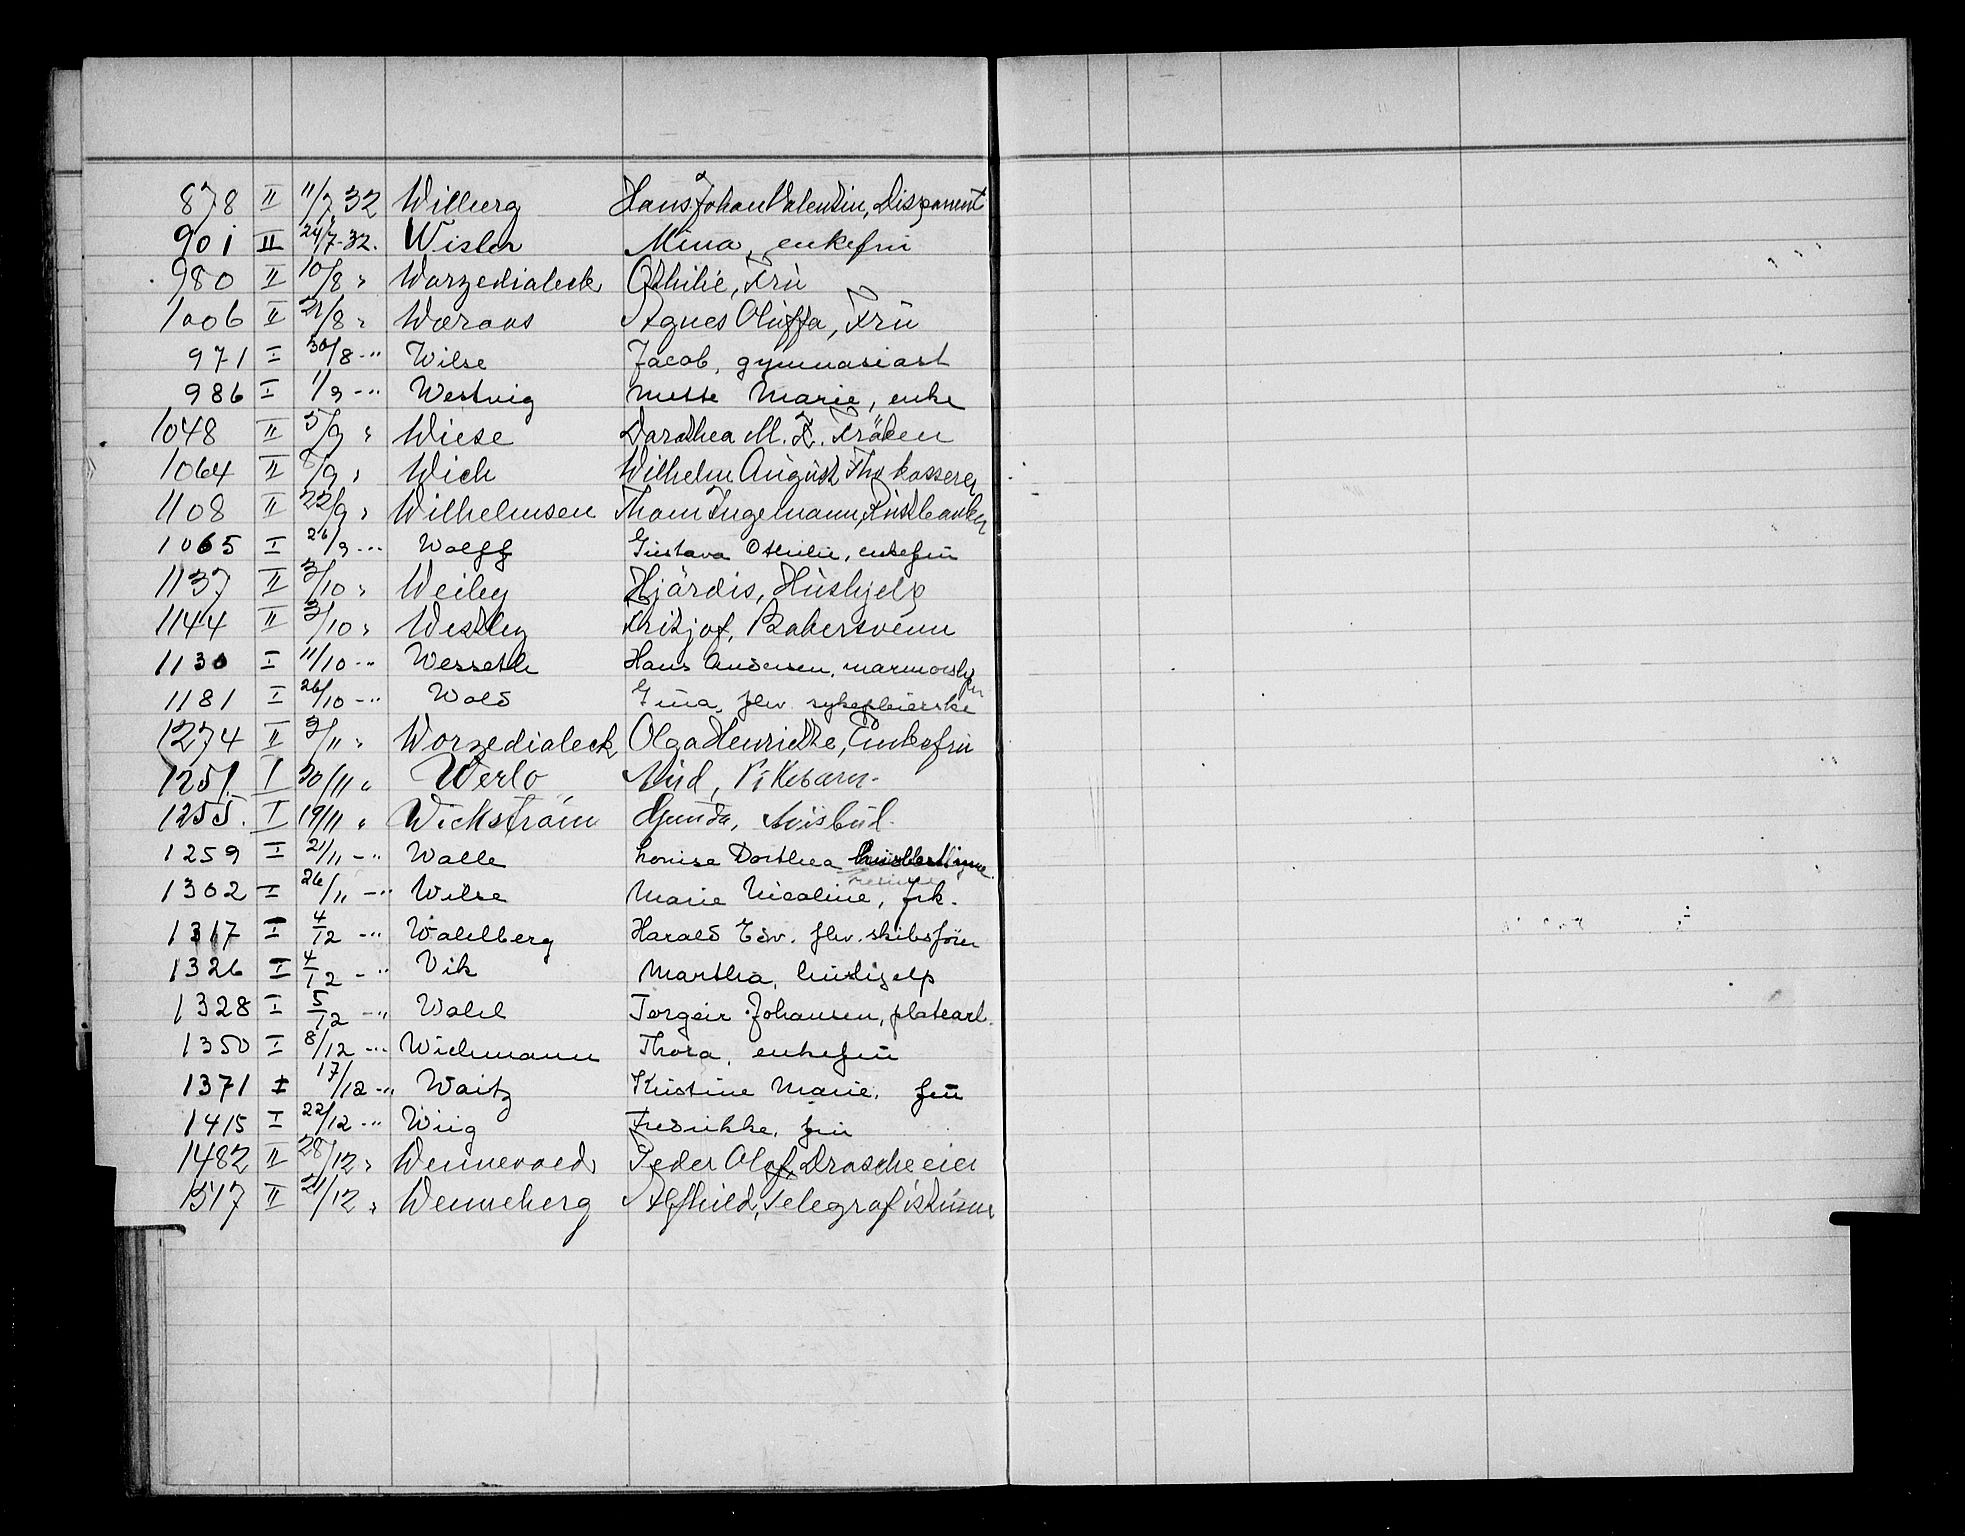 878 II 11/7 32 Wilberg Hans Johan Valentin, Disponent
901 II 24/7-32. Wisler Mina, enkefru
980 II 10/8 " Warzedialeck Othilie, Frü
1006 II 21/8 " Wæraas Agnes Oluffa, Frü
971 I 30/8 -" Wilse Jacob, gymnasiast
986 I 1/9 -" Westvig Mette Marie, enke
1048 II 5/9 " Wiese Dorothea M. K. Fröken
1064 II 8/9 " Wich Wilhelm August Thv kasserer
1108 II 22/9 " Wilhelmsen Thom Ingemann
1065 I 26/9 -" Wolff Gustava Othilie, enkefrü
1137 II 3/10 " Weiby Hjördis, Hüshjelp
1144 II 3/10 " Westby Fritjof, Bakersvenn
1130 I 11/10 -" Wesseth Hans Andersen,
1181 I 26/10 -" Wold Gina, fhv. sykepleierske
1274 II 3/11 " Worzedialeck Olga Henriette, Enkefru
1251. I 20/11 " Werlo Pikebarn.
1255. I 19/11 " Wickstrøm Gunda, Avisbud.
1259 I 21/11 -" Walle Lonise Dorthea
1302 I 26/11 -" Wilse Marie Nicoline, frk.
1317 I 4/12 -" Wahlberg Harald Edv. fhv. skibsfører
1326 I 4/12 -" Vik Martha, hushjelp
1328 I 5/12 -" Wahl Torgeir Johansen, platearb.
1350 I 8/12 -" Wichmann Thora, enkefrü
1371 I 17/12 -" Waitz Kristine Marie, frü
1415 I 22/12 -" Wiig Fredrikke, fru
1482 II 28/12 " Wennevold Peder Olaf, Droscheeier
1517 II 21/12 " Wenneberg Alfhild, Telegrafistinne